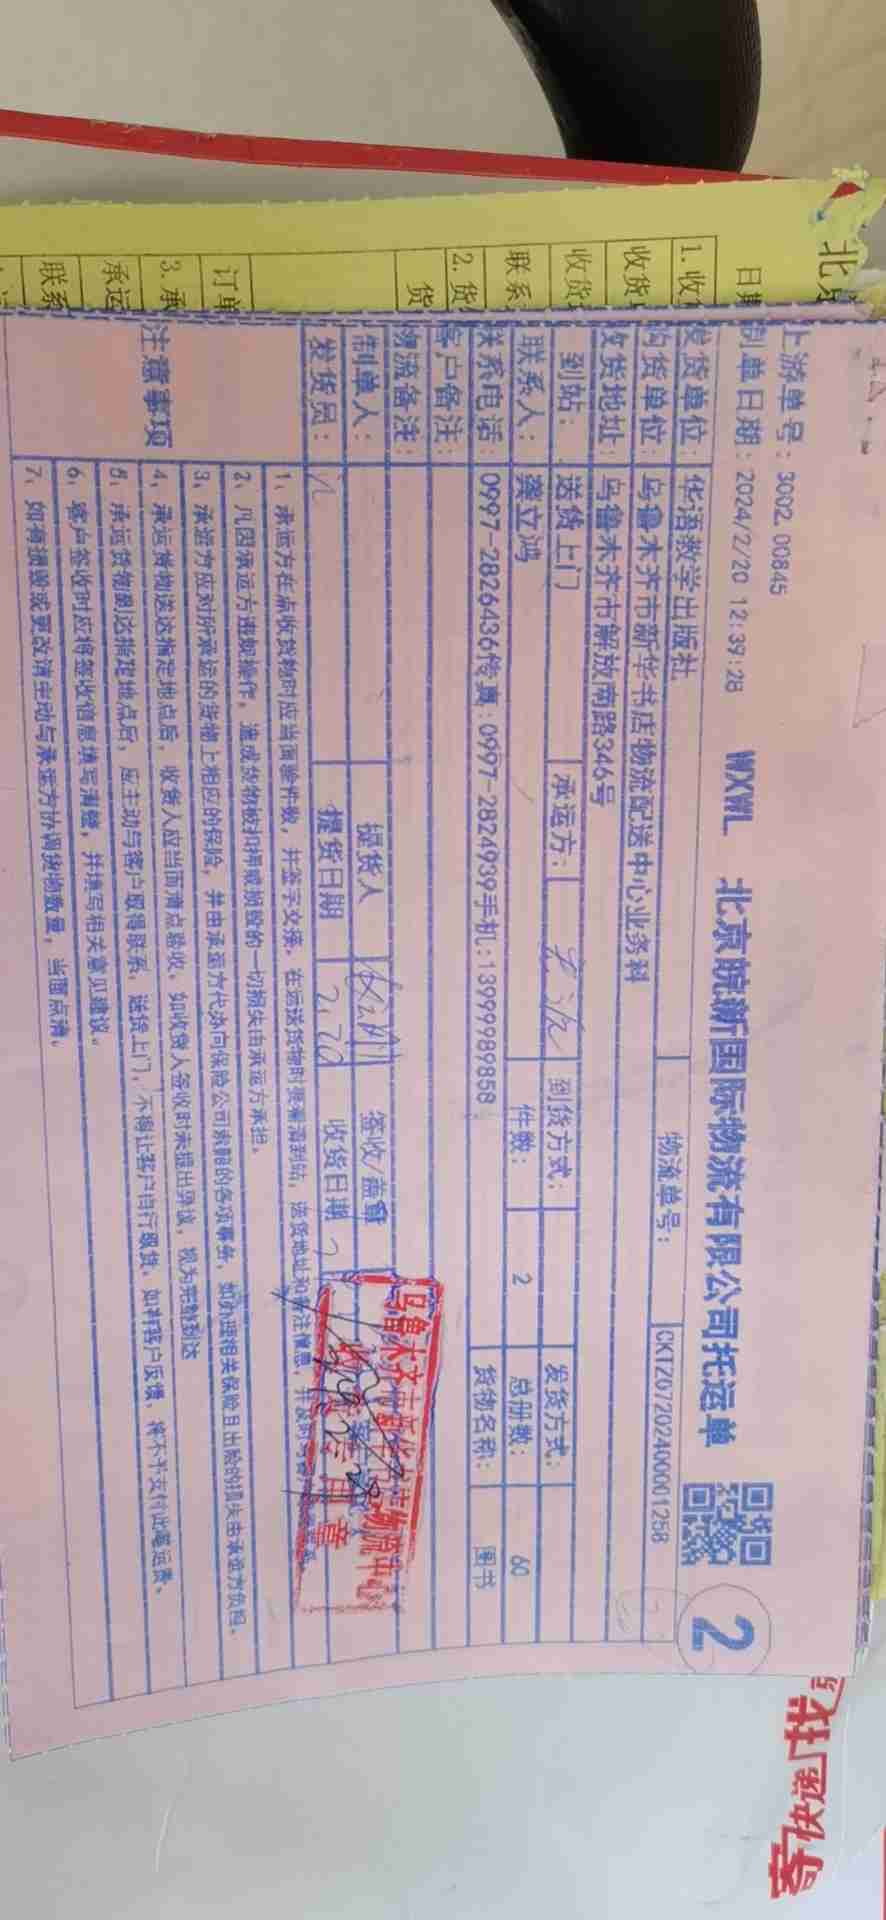 上游单号：3002 00845
制单日期：2024/2/20 12:39:28 WXWL 北京皖新国际物流有限公司托运单 2
发货单位：华语教学出版社 物流单号：CKTZ0720240001258
购货单位：乌鲁木齐市新华书店物流配送中心业务科
收货地址：乌鲁木齐市解放南路346号
到站：送货上门 承运方： 到货方式： 发货方式：
联系人：蔡立鸿 件数：2 总册数：60
联系电话：0997-2826436传真:0997-2824939手机:13999989858 货物名称：图书
客户备注：
物流备注：
制单人： 提货人 签收/盖章
发货员： 提货日期 2.20 收货日期
乌鲁木齐市新华书店物流中心
收货专用章
注意事项
1、承运方在点收货物时应当面验件数，并签字交接。在运送货物时要看清到站，送货地址和备注信息，并及时与客
2、凡因承运方违规操作，造成货物被扣押或损毁的一切损失由承运方承担。
3、承运方应对所承运的货物上相应的保险，并由承运方代办向保险公司索赔的各项事务，如办理相关保险且出险的损失由承运方负担。
4、承运货物送达指定地点后，收货人应当面清点验收，如收货人签收时未提出异议，视为完整到达
5、承运货物到达指定地点后，应主动与客户取得联系，送货上门，不得让客户自行取货，如有客户反馈，将不予支付此笔运费。
6、客户签收时应将签收信息填写清楚，并填写相关意见建议。
7、如有损毁或更改请主动与承运方协调货物数量，当面点清。
北京
日期
1.收货
收货
收货
联系
2.货
货
订单
3.承
承运
联系
寄快递 找